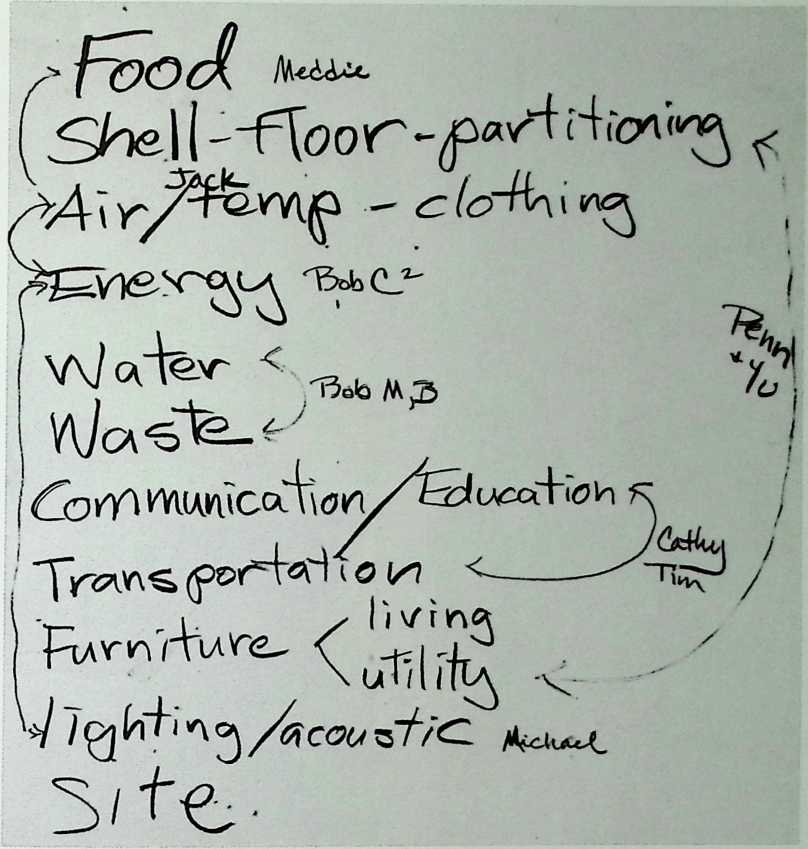 Food Meddie
Shell-Floor-partitioning
Jack
Air/temp - clothing
Energy Bob C²
Penn
+ Yu
Water
Bob M, B
Waste
Communication/Education
Cathy
Tim
Transportation
living
Furniture
utility
lighting/acoustic Michael
Site.